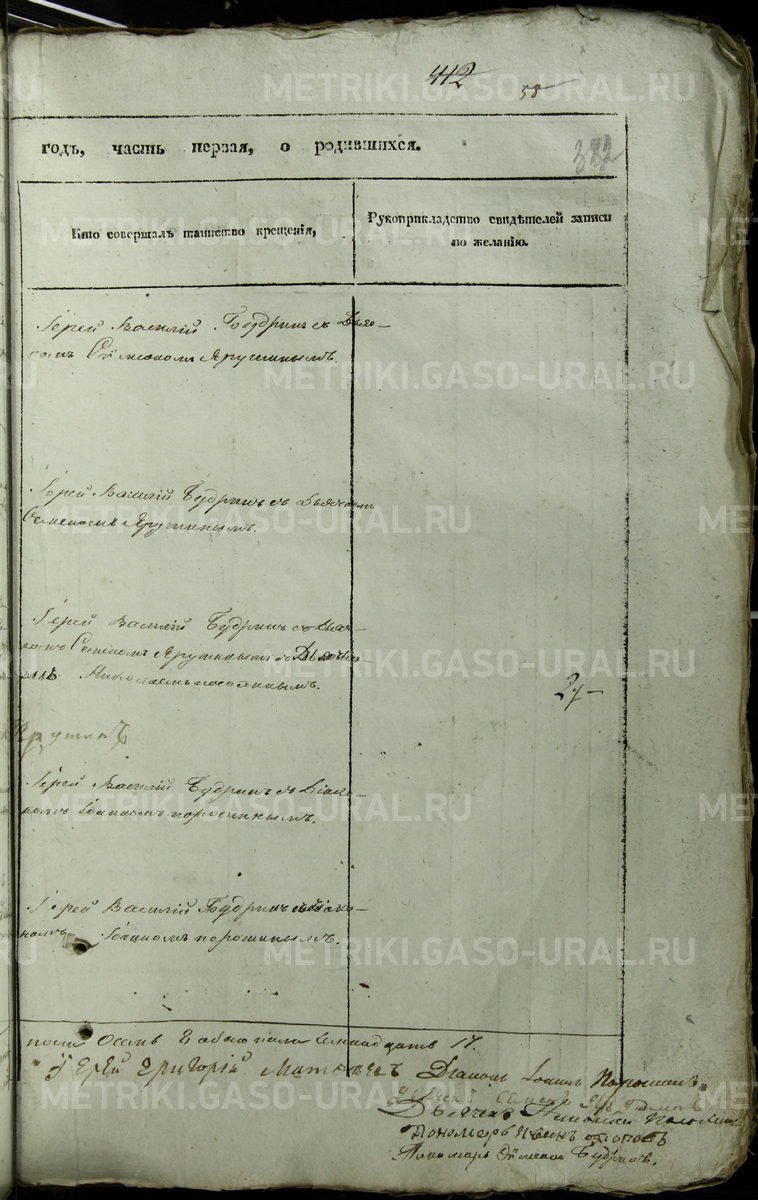 412
58
322
годъ, часть первая, о родившихся.
Кто совершалъ таинство крещенія,
Рукоприкладство свидѣтелей записи
по желанію.
Іерей Василій Будринъ съ Дьяч-
комъ Сѵмеономъ Ярушинымъ.
Іерей Василій Будринъ съ Дьячкомъ
Семеномъ Ярушинымъ.
Іерей Василій Будринъ съ Дьяч-
комъ Ярушинымъ
Николаемъ
Іерей Василій Будринъ съ Діако-
номъ Іоанномъ Порошинымъ.
Іерей Василій Будринъ съ Діако-
номъ Іоанномъ Порошинымъ.
обоего пола семнадцать 17.
Іерей Григорій Діаконъ Іоаннъ Порошинъ
Семенъ
Дьячекъ Николай
Пономарь Иванъ Поповъ
Пономарь Сѵмеонъ Будринъ.
METRIKI.GASO-URAL.RU